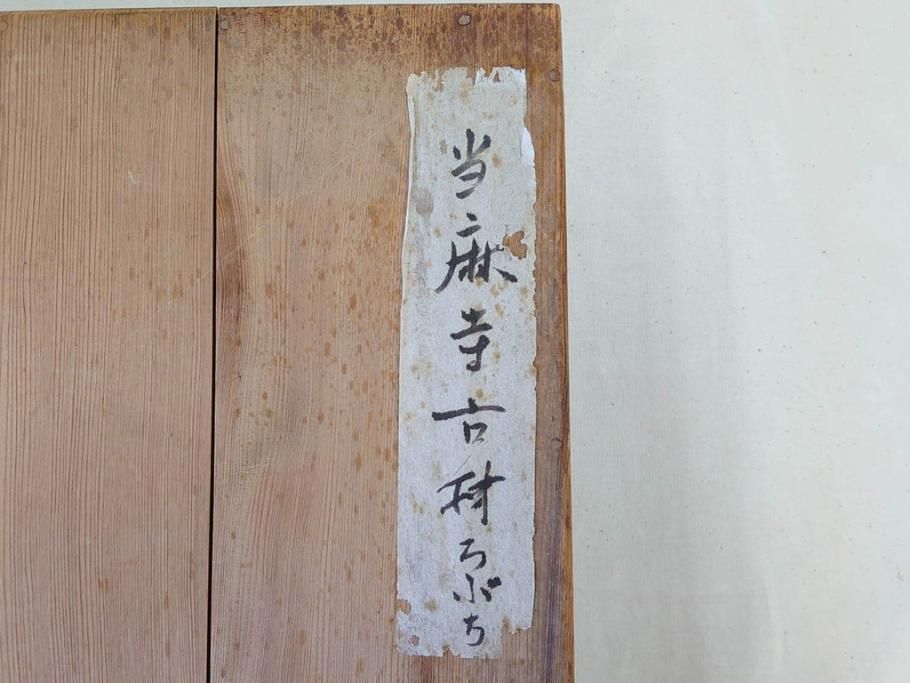 当麻寺古材ろぶち